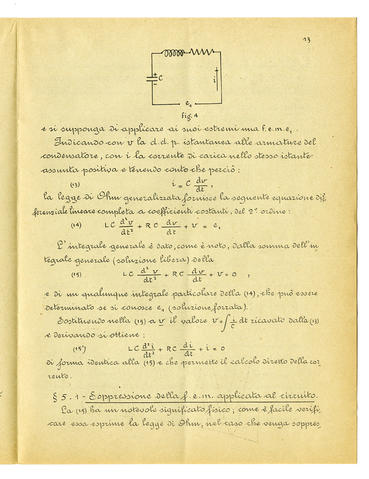 13
C
i
e₁
fig. 4
e si supponga di applicare ai suoi estremi una f.e.m. e₁.
Indicando con v la d.d.p. istantanea alle armature del
condensatore, con i la corrente di carica nello stesso istante
assunta positiva e tenendo conto che perciò:
(13) i = C dv/dt ,
la legge di Ohm generalizzata fornisce la seguente equazione dif
ferenziale lineare completa a coefficienti costanti, del 2° ordine:
(14) LC d²v/dt² + RC dv/dt + v = e₁
L'integrale generale è dato, come è noto, dalla somma dell'in
tegrale generale (soluzione libera) della
(15) LC d²v/dt² + RC dv/dt + v = 0 ,
e di un qualunque integrale particolare della (14), che può essere
determinato se si conosce e₁ (soluzione forzata).
Sostituendo nella (15) a v il valore v = ∫ i/C dt ricavato dalla (13)
e derivando si ottiene:
(15') LC d²i/dt² + RC di/dt + i = 0
di forma identica alla (15) e che permette il calcolo diretto della cor
rente.
§ 5.1 - Soppressione della f.e.m. applicata al circuito.
La (15) ha un notevole significato fisico; come è facile verifi
care essa esprime la legge di Ohm, nel caso che venga soppres